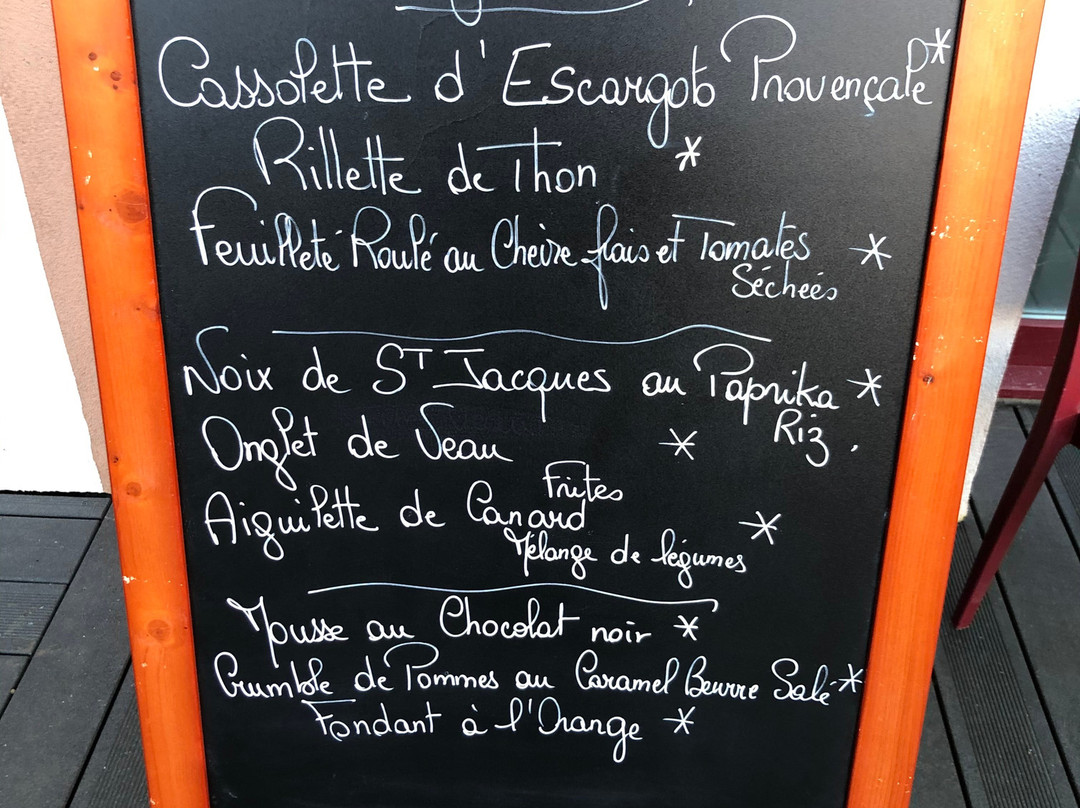 Cassolette d'Escargots Provençale *
Rillette de Thon *
Feuilleté Roulé au Chèvre frais et Tomates *
Séchées
Noix de ST Jacques au Paprika *
Riz.
Onglet de Veau *
Frites
Aiguilette de Canard *
Mélange de légumes
Mousse au Chocolat noir *
Crumble de Pommes au Caramel Beurre Salé *
Fondant à l'Orange *